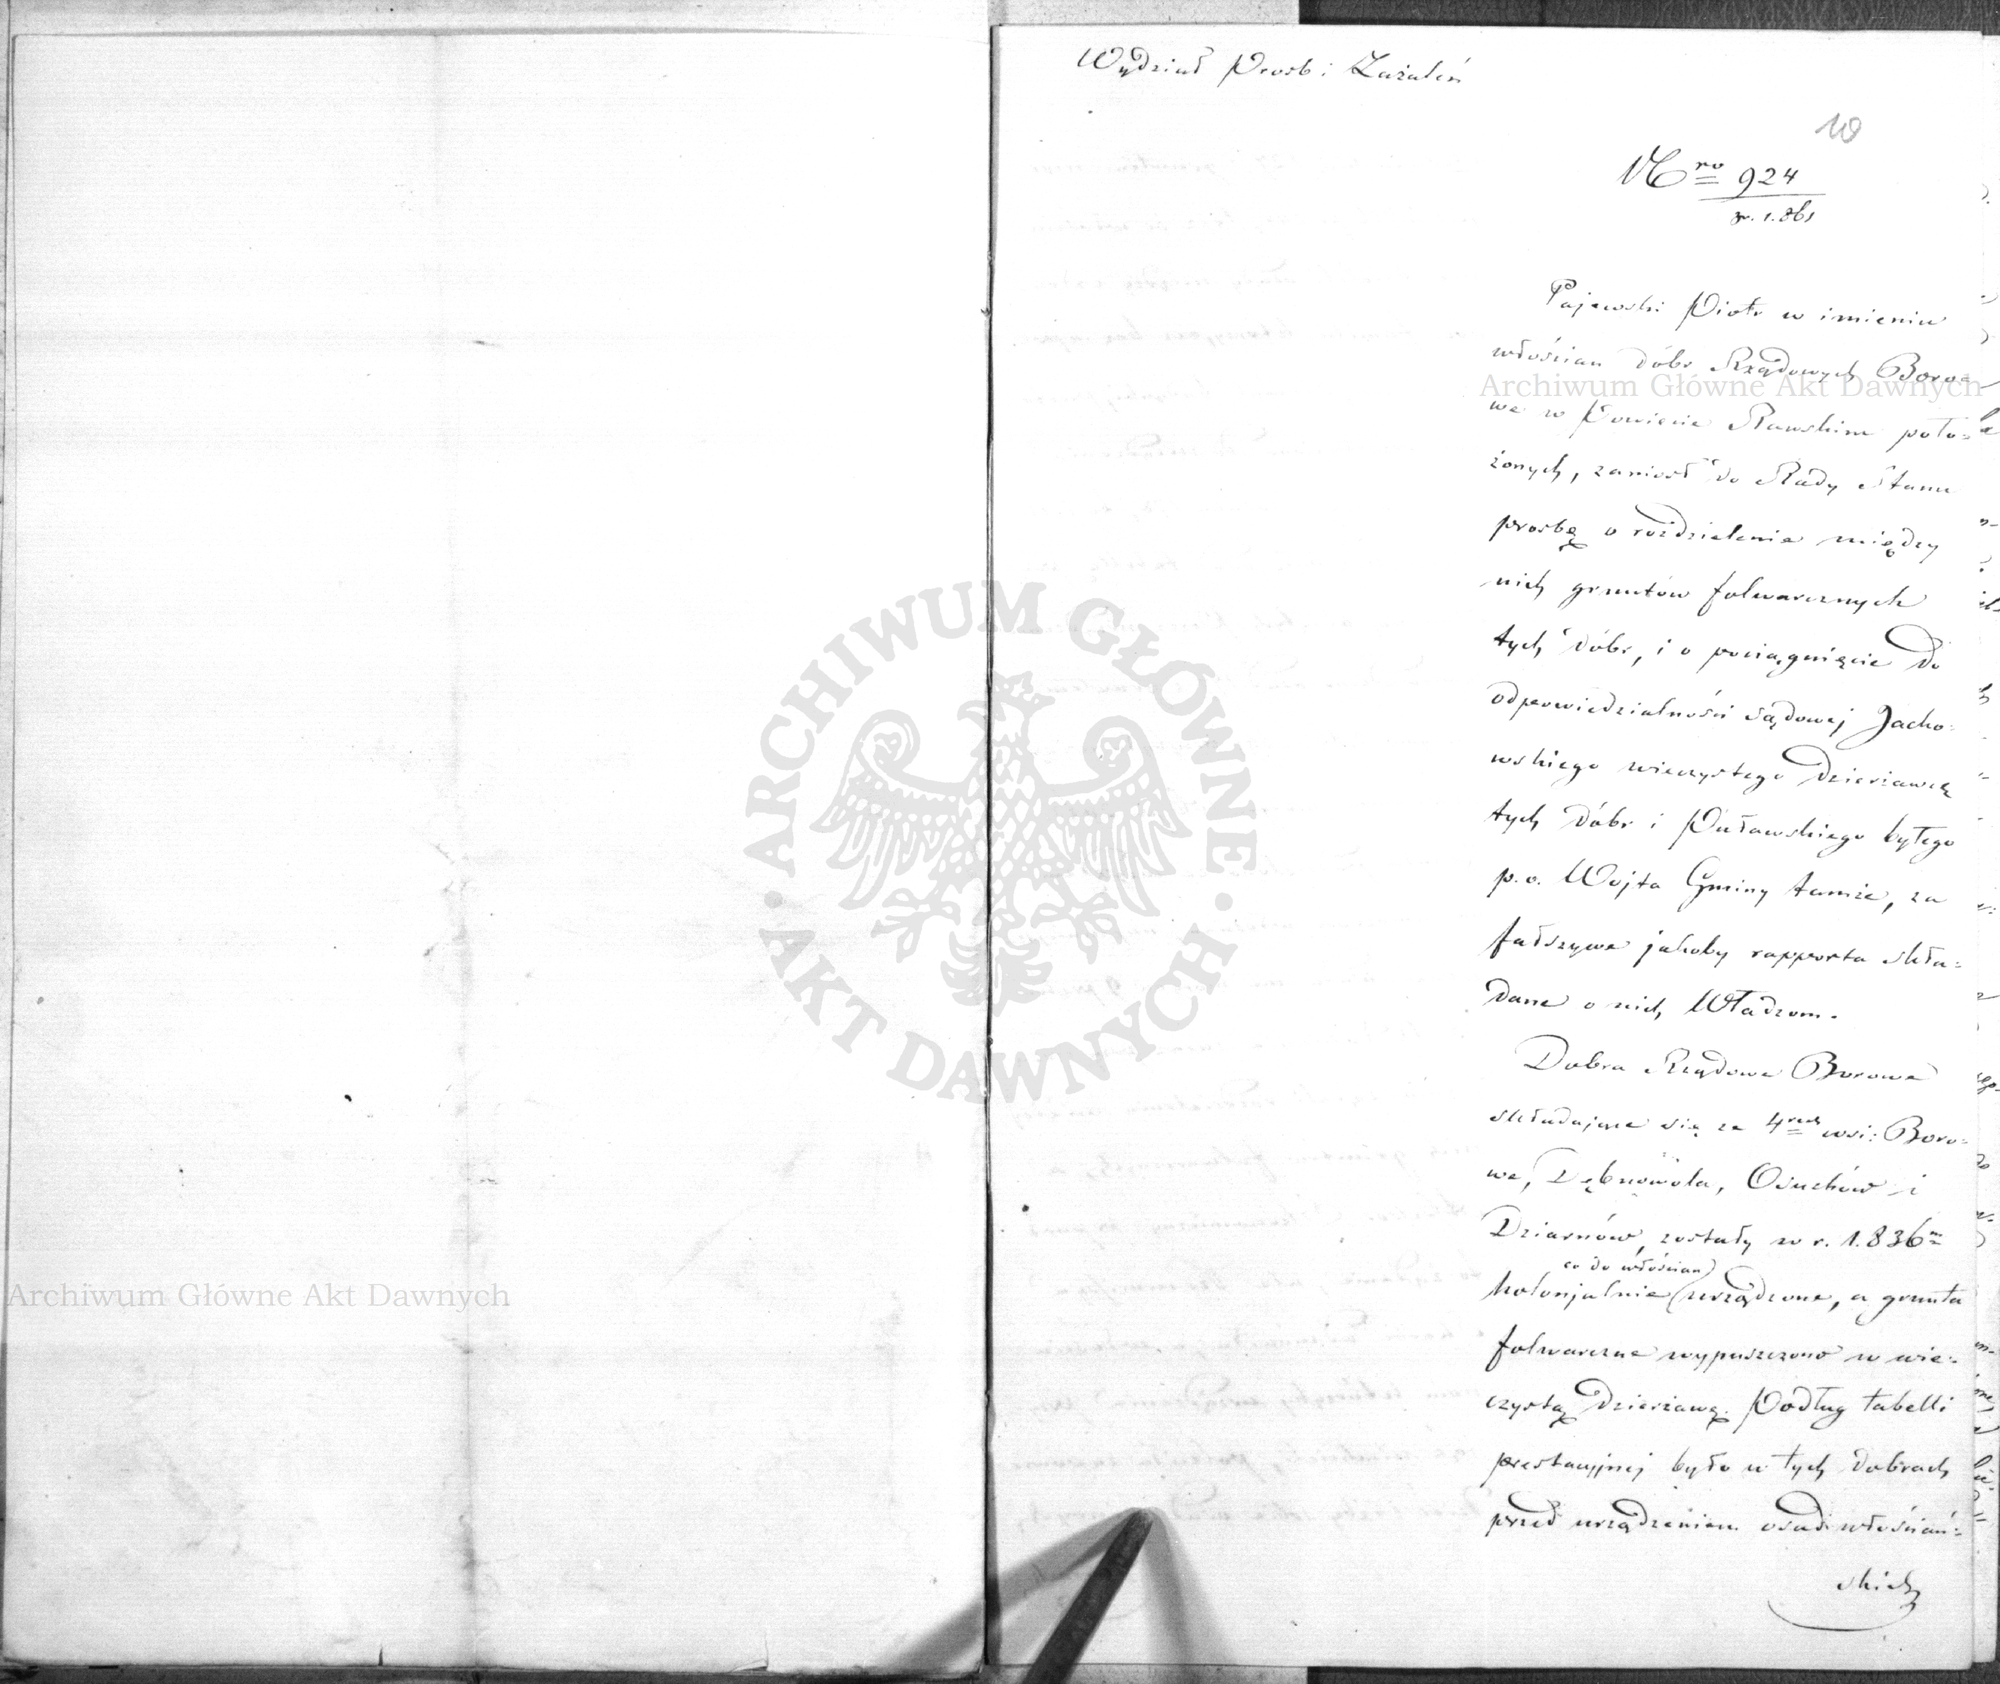 Wydział Prosb i Zażaleń
10
Nro 924
r. 1.861
Pajewski Piotr w imieniu
włościan dóbr Rządowych Boro=
we w Powiecie Rawskim poło=
żonych, zaniosł do Rady Stanu
prosbę o rozdzielenie między
nich gruntów folwarcznych
tych dóbr, i o pociągnięcie do
odpowiedzialności sądowej Jacho=
wskiego wieczystego dzierżawcę
tych dóbr i Puławskiego byłego
p. o. Wójta Gminy tamże, za
fałszywe jakoby rapporta skła=
dane o nich Władzom.
Dobra Rządowe Borowe
składające się ze 4rech wsi: Boro=
we, Dębnowola, Osuchów i
Dziarnów, zostały w r. 1.836m
co do włościan
kolonjalnie urządzone, a grunta
folwarczne wypuszczono w wie=
czystą dzierżawę. Podług tabelli
prestacyjnej było w tych dobrach
przed urządzeniem osad włościań=
skich
Archiwum Główne Akt Dawnych
Archiwum Główne Akt Dawnych
ARCHIWUM GŁÓWNE
AKT DAWNYCH